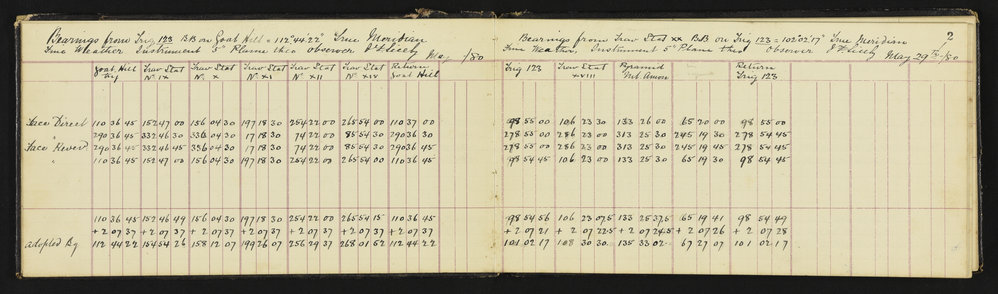 Bearings from Trig 123 BB on Goat Hill = 112°44'22" True Meridian
Fine Weather Instrument 5" Plane theo observer May /80
Goat Hill Trav Stat Trav Stat Trav Stat Trav Stat Trav Stat Return
N° IX N° X N° XI N° XII N° XIV Goat Hill
Face Direct 110 36 45 152 47 00 156 04 30 197 18 30 254 22 00 265 54 00 110 37 00
" 290 36 45 332 46 30 336 04 30 17 18 30 74 22 00 85 54 30 290 36 30
Face Reverd 290 36 45 332 46 45 336 04 30 17 18 30 74 22 00 85 54 30 290 36 45
" 110 36 45 152 47 00 156 04 30 197 18 30 254 22 00 265 54 00 110 36 45
110 36 45 152 46 49 156 04 30 197 18 30 254 22 00 265 54 15 110 36 45
+2 07 37 +2 07 37 +2 07 37 +2 07 37 +2 07 37 +2 07 37 +2 07 37
adopted Bg 112 44 22 154 54 26 158 12 07 199 26 07 256 29 37 268 01 52 112 44 22
2
Bearings from Trav Stat XX BB on Trig 123 = 102°02'17" True Meridian
Fine Weather, Instrument 5" Plane theo Observer May 29th /80
Trig 123 Trav Stat Pyramid Return
XVIII Mt Trig 123
98 55 00 106 23 30 133 26 00 65 20 00 98 55 00
278 55 00 286 23 00 313 25 30 245 19 30 278 54 45
278 55 00 286 23 00 313 25 30 245 19 45 278 54 45
98 54 45 106 23 00 133 25 30 65 19 30 98 54 45
98 54 56 106 23 07.5 133 25 37.5 65 19 41 98 54 49
+2 07 21 +2 07 22.5 +2 07 24.5 +2 07 26 +2 07 28
101 02 17 108 30 30 135 33 02 67 27 07 101 02 17